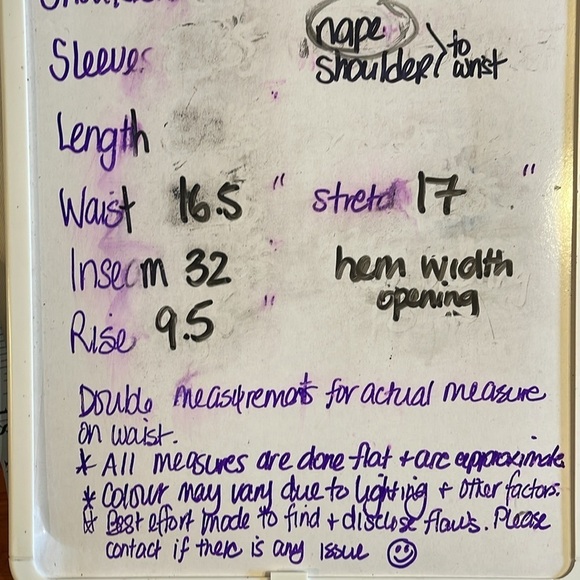 Sleeves
nape
shoulder to wrist
Length
Waist 16.5 " stretch 17 "
Inseam 32
hem width
opening
Rise 9.5 "
Double measurements for actual measure
on waist.
* All measures are done flat + are approximate.
* Colour may vary due to lighting + other factors.
* Best effort made to find + disclose flaws. Please
contact if there is any issue ☺